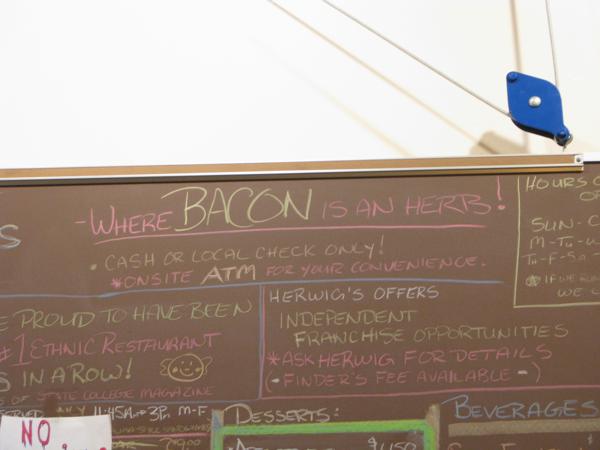 -WHERE BACON IS AN HERB!
• CASH OR LOCAL CHECK ONLY!
*ONSITE ATM FOR YOUR CONVENIENCE.
HOURS
SUN-
M-TU-W
TU-F-SA-
IF WE
WE
PROUD TO HAVE BEEN
#1 ETHNIC RESTAURANT
IN A ROW!
OF STATE COLLEGE MAGAZINE
HERWIG'S OFFERS
INDEPENDENT
FRANCHISE OPPORTUNITIES
*ASK HERWIG FOR DETAILS
(-FINDER'S FEE AVAILABLE-)
11:45A 3P. M-F
NO
DESSERTS:
BEVERAGES